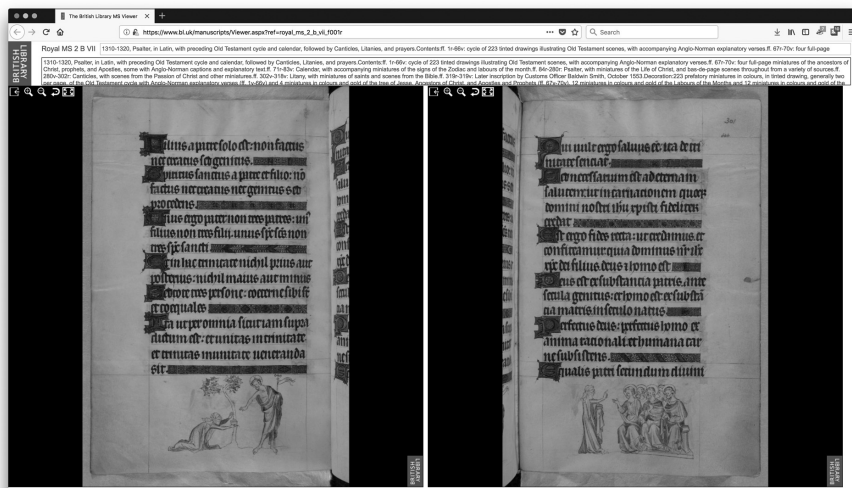 The British Library MS Viewer
https://www.bl.uk/manuscripts/Viewer.aspx?ref=royal_ms_2_b_vii_f001r
Search
BRITISH LIBRARY
Royal MS 2 B VII
1310-1320, Psalter, in Latin, with preceding Old Testament cycle and calendar, followed by Canticles, Litanies, and prayers.Contents:ff. 1r-66v: cycle of 223 tinted drawings illustrating Old Testament scenes, with accompanying Anglo-Norman explanatory verses.ff. 67r-70v: four full-page
1310-1320, Psalter, in Latin, with preceding Old Testament cycle and calendar, followed by Canticles, Litanies, and prayers.Contents:ff. 1r-66v: cycle of 223 tinted drawings illustrating Old Testament scenes, with accompanying Anglo-Norman explanatory verses.ff. 67r-70v: four full-page miniatures of the ancestors of
Christ, prophets, and Apostles, some with Anglo-Norman captions and explanatory text.ff. 71r-83v: Calendar, with accompanying miniatures of the signs of the Zodiac and labours of the month.ff. 84r-280r: Psalter, with miniatures of the Life of Christ, and bas-de-page scenes throughout from a variety of sources.ff.
280v-302r: Canticles, with scenes from the Passion of Christ and other miniatures.ff. 302v-318v: Litany, with miniatures of saints and scenes from the Bible.ff. 319r-319v: Later inscription by Customs Officer Baldwin Smith, October 1553.Decoration:223 prefatory miniatures in colours, in tinted drawing, generally two
per page, of the Old Testament cycle with Anglo-Norman explanatory verses (ff. 1v-66v) and 4 miniatures in colours and gold of the tree of Jesse, Ancestors of Christ, and Apostles and Prophets (ff. 67v-70v). 12 miniatures in colours and gold of the Labours of the Months and 12 miniatures in colours and gold of the
Filius a patre solo est: non factus
nec creatus sed genitus.
Spiritus sanctus a patre et filio: no
factus nec creatus nec genitus sed
procedens.
Unus ergo pater non tres patres: un
filius non tres filii. unus sps sc̃s non
tres sp̃c sancti
Et in hac trinitate nichil prius aut
posterius: nichil maius aut minus
Sed tote tres persone: coeterne sibi st̃
et coequales
Ita ut per omnia sicut iam supra
dictum est: et unitas in trinitate
et trinitas in unitate ueneranda
sit.
BRITISH LIBRARY
Qui uult ergo saluus eē: ita de tri
nitate senciat.
Sed necessarium est ad eternam
salutem: ut incarnacionem quoqz
domini nostri ihu xpisti fideliter
credat
Est ergo fides recta: ut credimus et
confiteamur quia dominus nr̃ ihc
xp̃c dei filius deus 7 homo est
Deus est ex substancia patris ante
secula genitus: et homo est ex substã
cia matris in seculo natus.
Perfectus deus: perfectus homo ex
anima racionali et humana car
ne subsistens.
Equalis patri secundum diuini
BRITISH LIBRARY